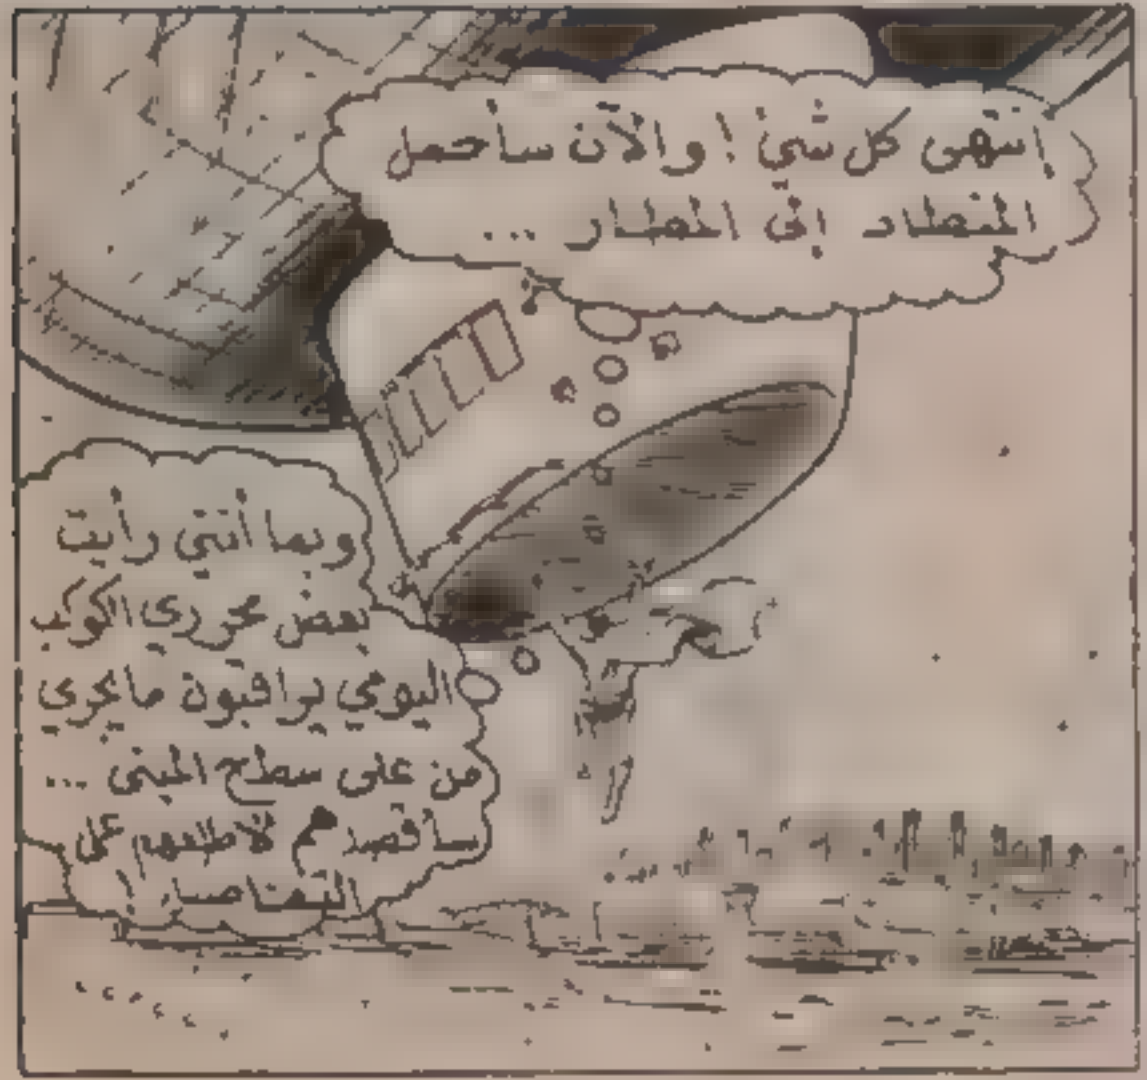 انتهى كل شيئ ! والآن سأحمل
المنطاد إلى المطار ...
وبما أنني رأيت
بعض محرري الكوكب
اليومي يراقبون مايجري
من على سطح المبنى ...
سأقصدهم لأطلعهم على
التفاصيل !